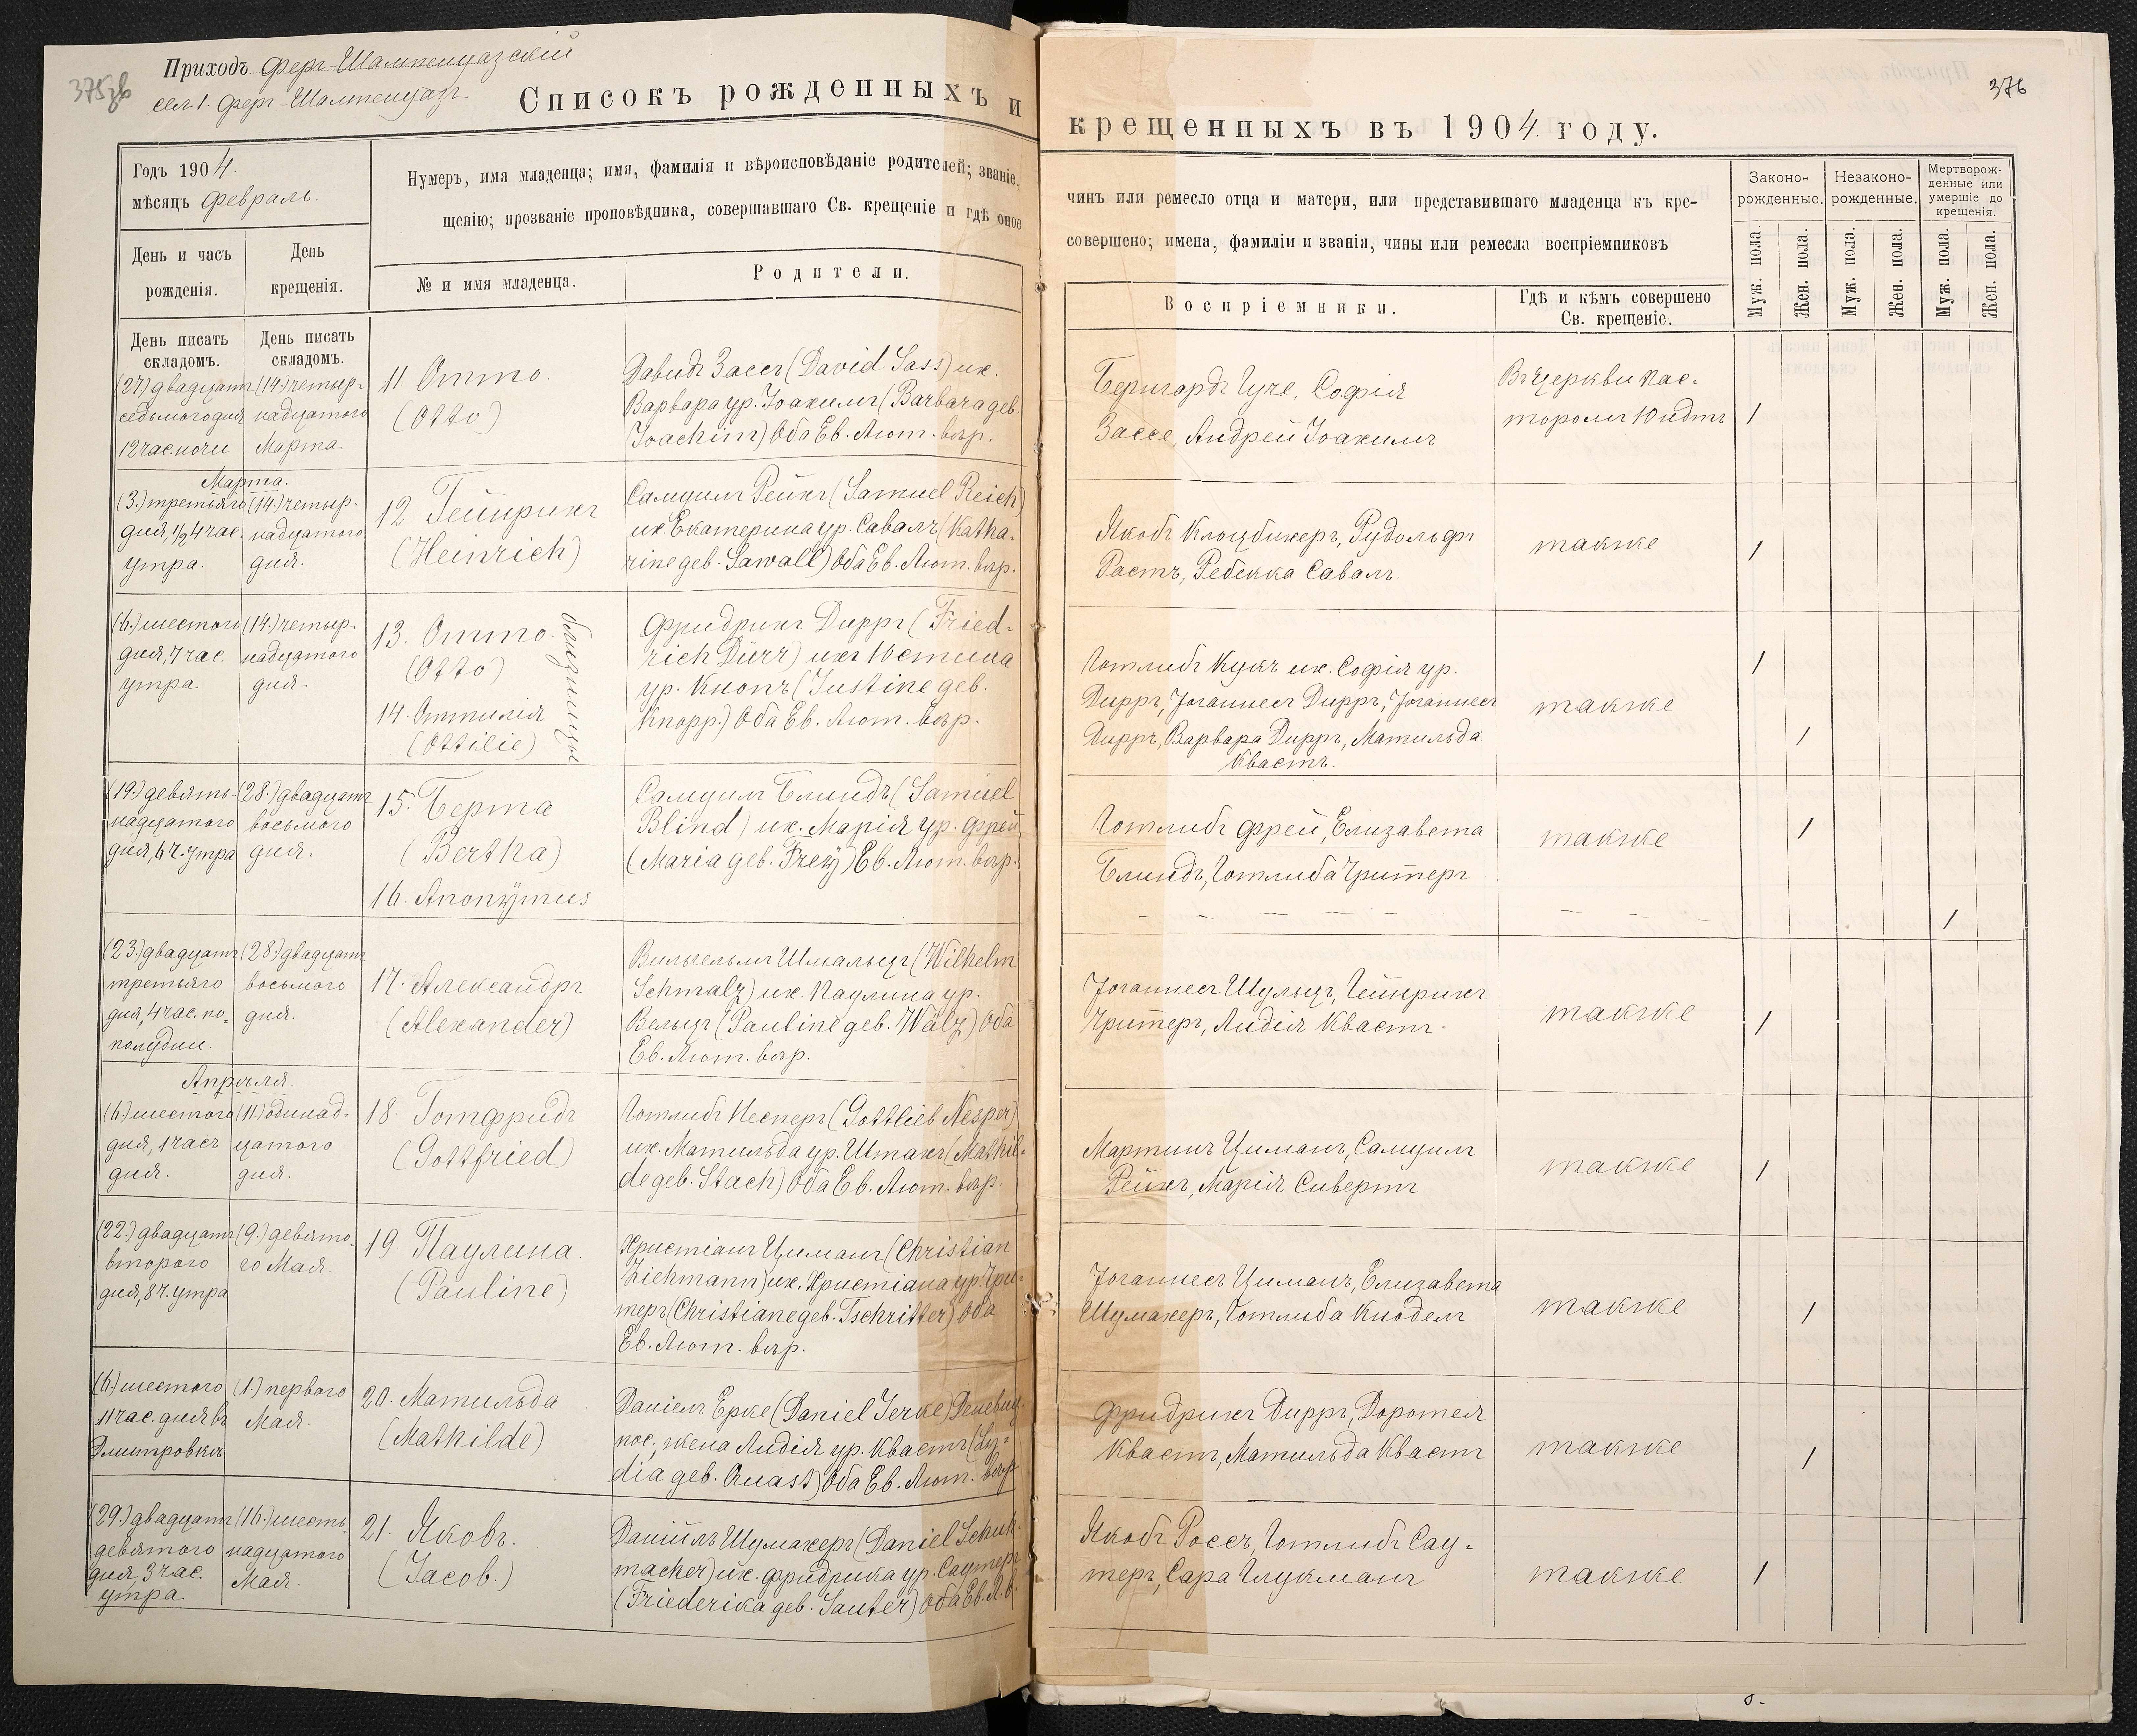 375зв
Приходъ Ферг-Шампенуазскій
сел. 1. Ферг-Шампенуазъ
Списокъ рожденныхъ и
крещенныхъ въ 1904. году.
376
Годъ 1904.
мѣсяцъ Февраль.
Нумеръ, имя младенца; имя, фамилія и вѣроисповѣданіе родителей; званіе,
щенію; прозваніе проповѣдника, совершавшаго Св. крещеніе и гдѣ оное
День и часъ
рожденія.
День
крещенія.
№ и имя младенца.
Родители.
чинъ или ремесло отца и матери, или представившаго младенца къ кре-
совершено; имена, фамиліи и званія, чины или ремесла воспріемниковъ
Воспріемники.
Гдѣ и кѣмъ совершено
Св. крещеніе.
Законо-
рожденные.
Незаконо-
рожденные.
Мертворож-
денные или
умершіе до
крещенія.
Муж. пола
Жен. пола.
Муж. пола.
Жен. пола.
Муж. пола.
Жен. пола.
День писать
складомъ.
День писать
складомъ.
(27.) двадцать
седьмого дня
12 час. ночи
(14.) четыр-
надцатого
Марта.
11. Отто.
(Otto)
Давидъ Зассъ (David Sass) и ж.
Варвара ур. Іоакимъ (Barbara geb.
Joachim) Оба Ев. Лют. вѣр.
Бернгардъ Гуче, Софія
Зассе, Андрей Іоакимъ
Въ церкви пас-
торомъ Юндтъ
/
Марта.
(3.) третьяго
дня, 1/2 4 час.
утра.
(14.) четыр-
надцатого
дня.
12. Гейнрихъ
(Heinrich)
Самуилъ Рейхъ (Samuel Reich)
и ж. Екатерина ур. Савалъ (Katha-
rine geb. Sawall) Оба Ев. Лют. вѣр.
Якобъ Клоцбихеръ, Рудольфъ
Растъ, Ребекка Савалъ.
также
/
(6.) шестого
дня, 7 час.
утра.
(14.) четыр-
надцатого
дня.
13. Отто.
(Otto)
14. Оттилія
(Ottilie)
близнецы
Фридрихъ Дирръ (Fried-
rich Dürr) и ж. Юстина
ур. Кнопъ (Justine geb.
Knopp.) Оба Ев. Лют. вѣр.
Готлибъ Кукъ и ж. Софія ур.
Дирръ, Іоганнесъ Дирръ, Іоганнесъ
Дирръ, Варвара Дирръ, Матильда
Квастъ.
также
/
/
(19.) девять-
надцатого
дня, 6 ч. утра
(28.) двадцать
восьмого
дня.
15. Берта
(Bertha)
16. Anonÿmus
Самуилъ Блиндъ (Samuel
Blind) и ж. Марія ур. Фрей
(Maria geb. Freÿ) Ев. Лют. вѣр.
Готлибъ Фрей, Елизавета
Блиндъ, Готлиба Чриттеръ
также
/
/
(23.) двадцать
третьяго
дня, 4 час. по-
полудни.
(28.) двадцать
восьмого
дня.
17. Александръ
(Alexander)
Вильгельмъ Шмальцъ (Wilhelm
Schmalz) и ж. Паулина ур.
Вельцъ (Pauline geb. Wälz) Оба
Ев. Лют. вѣр.
Іоганнесъ Шульцъ, Гейнрихъ
Чриттеръ, Лидія Квастъ.
также
/
Апрѣля.
(6.) шестого
дня, 1 часъ
дня.
(11.) одинад-
цатого
дня.
18. Готфридъ
(Gottfried)
Готлибъ Несперъ (Gottlieb Nesper)
и ж. Матильда ур. Штахъ (Mathil-
de geb. Stach) Оба Ев. Лют. вѣр.
Мартинъ Циманъ, Самуилъ
Рейхъ, Марія Сивертъ
также
/
(22.) двадцать
второго
дня, 8 ч. утра
(9.) девято-
го Мая.
19. Паулина.
(Pauline)
Христіанъ Циманъ (Christian
Ziehmann) и ж. Христіана ур. Чрит-
теръ (Christiane geb. Tschritter) Оба
Ев. Лют. вѣр.
Іоганнесъ Циманъ, Елизавета
Шумахеръ, Готлиба Кнодель
также
/
(6.) шестого
11 час. дня въ
Дмитровкѣ
(1.) перваго
Мая.
20. Матильда
(Mathilde)
Даніелъ Ерке (Daniel Jerke)
пос., жена Лидія ур. Квастъ (Ly-
dia geb. Quast) Оба Ев. Лют. вѣр.
Фридрихъ Дирръ, Доротея
Квастъ, Матильда Квастъ
также
/
(29.) двадцать
девятого
дня 3 час.
утра.
(16.) шесть-
надцатого
Мая.
21. Яковъ.
(Jacob.)
Даніилъ Шумахеръ (Daniel Schuh-
macher) и ж. Фридрика ур. Саутеръ
(Friederika geb. Sauter) Оба Ев. Л. в.
Якобъ Россъ, Готлибъ Сау-
теръ, Сара Глукманъ
также
/